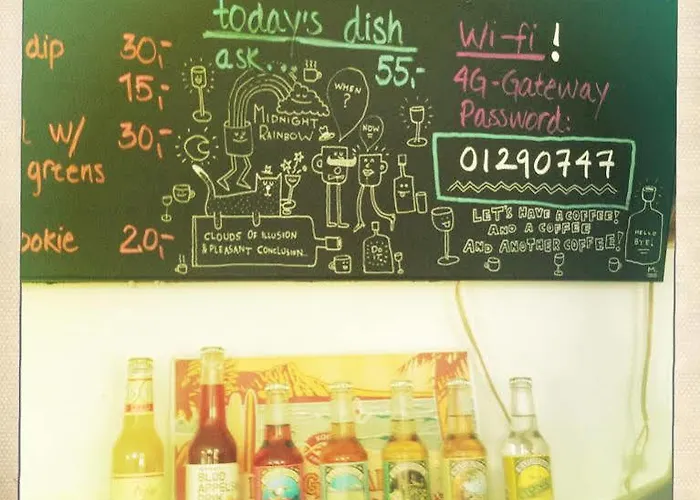 today's dish
ask... 55,-
dip 30,-
15,-
w/ 30,-
greens
20,-
MIDNIGHT
RAINBOW
WHEN
?
NOW
CLOUDS OF ILLUSION
& PLEASANT CONCLUSION...
Wi-fi!
4G-Gateway
Password:
01290747
LET'S HAVE A COFFEE!
AND A COFFEE
AND ANOTHER COFFEE!
HELLO
BYE!
BLOD
APPELSIN